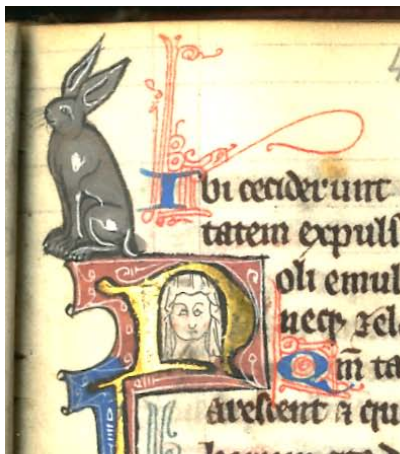 Ibi ceciderunt
tatem expulſ
Noli emul
neqꝫ zel
Qm̄ ta
areſcent ⁊ qu